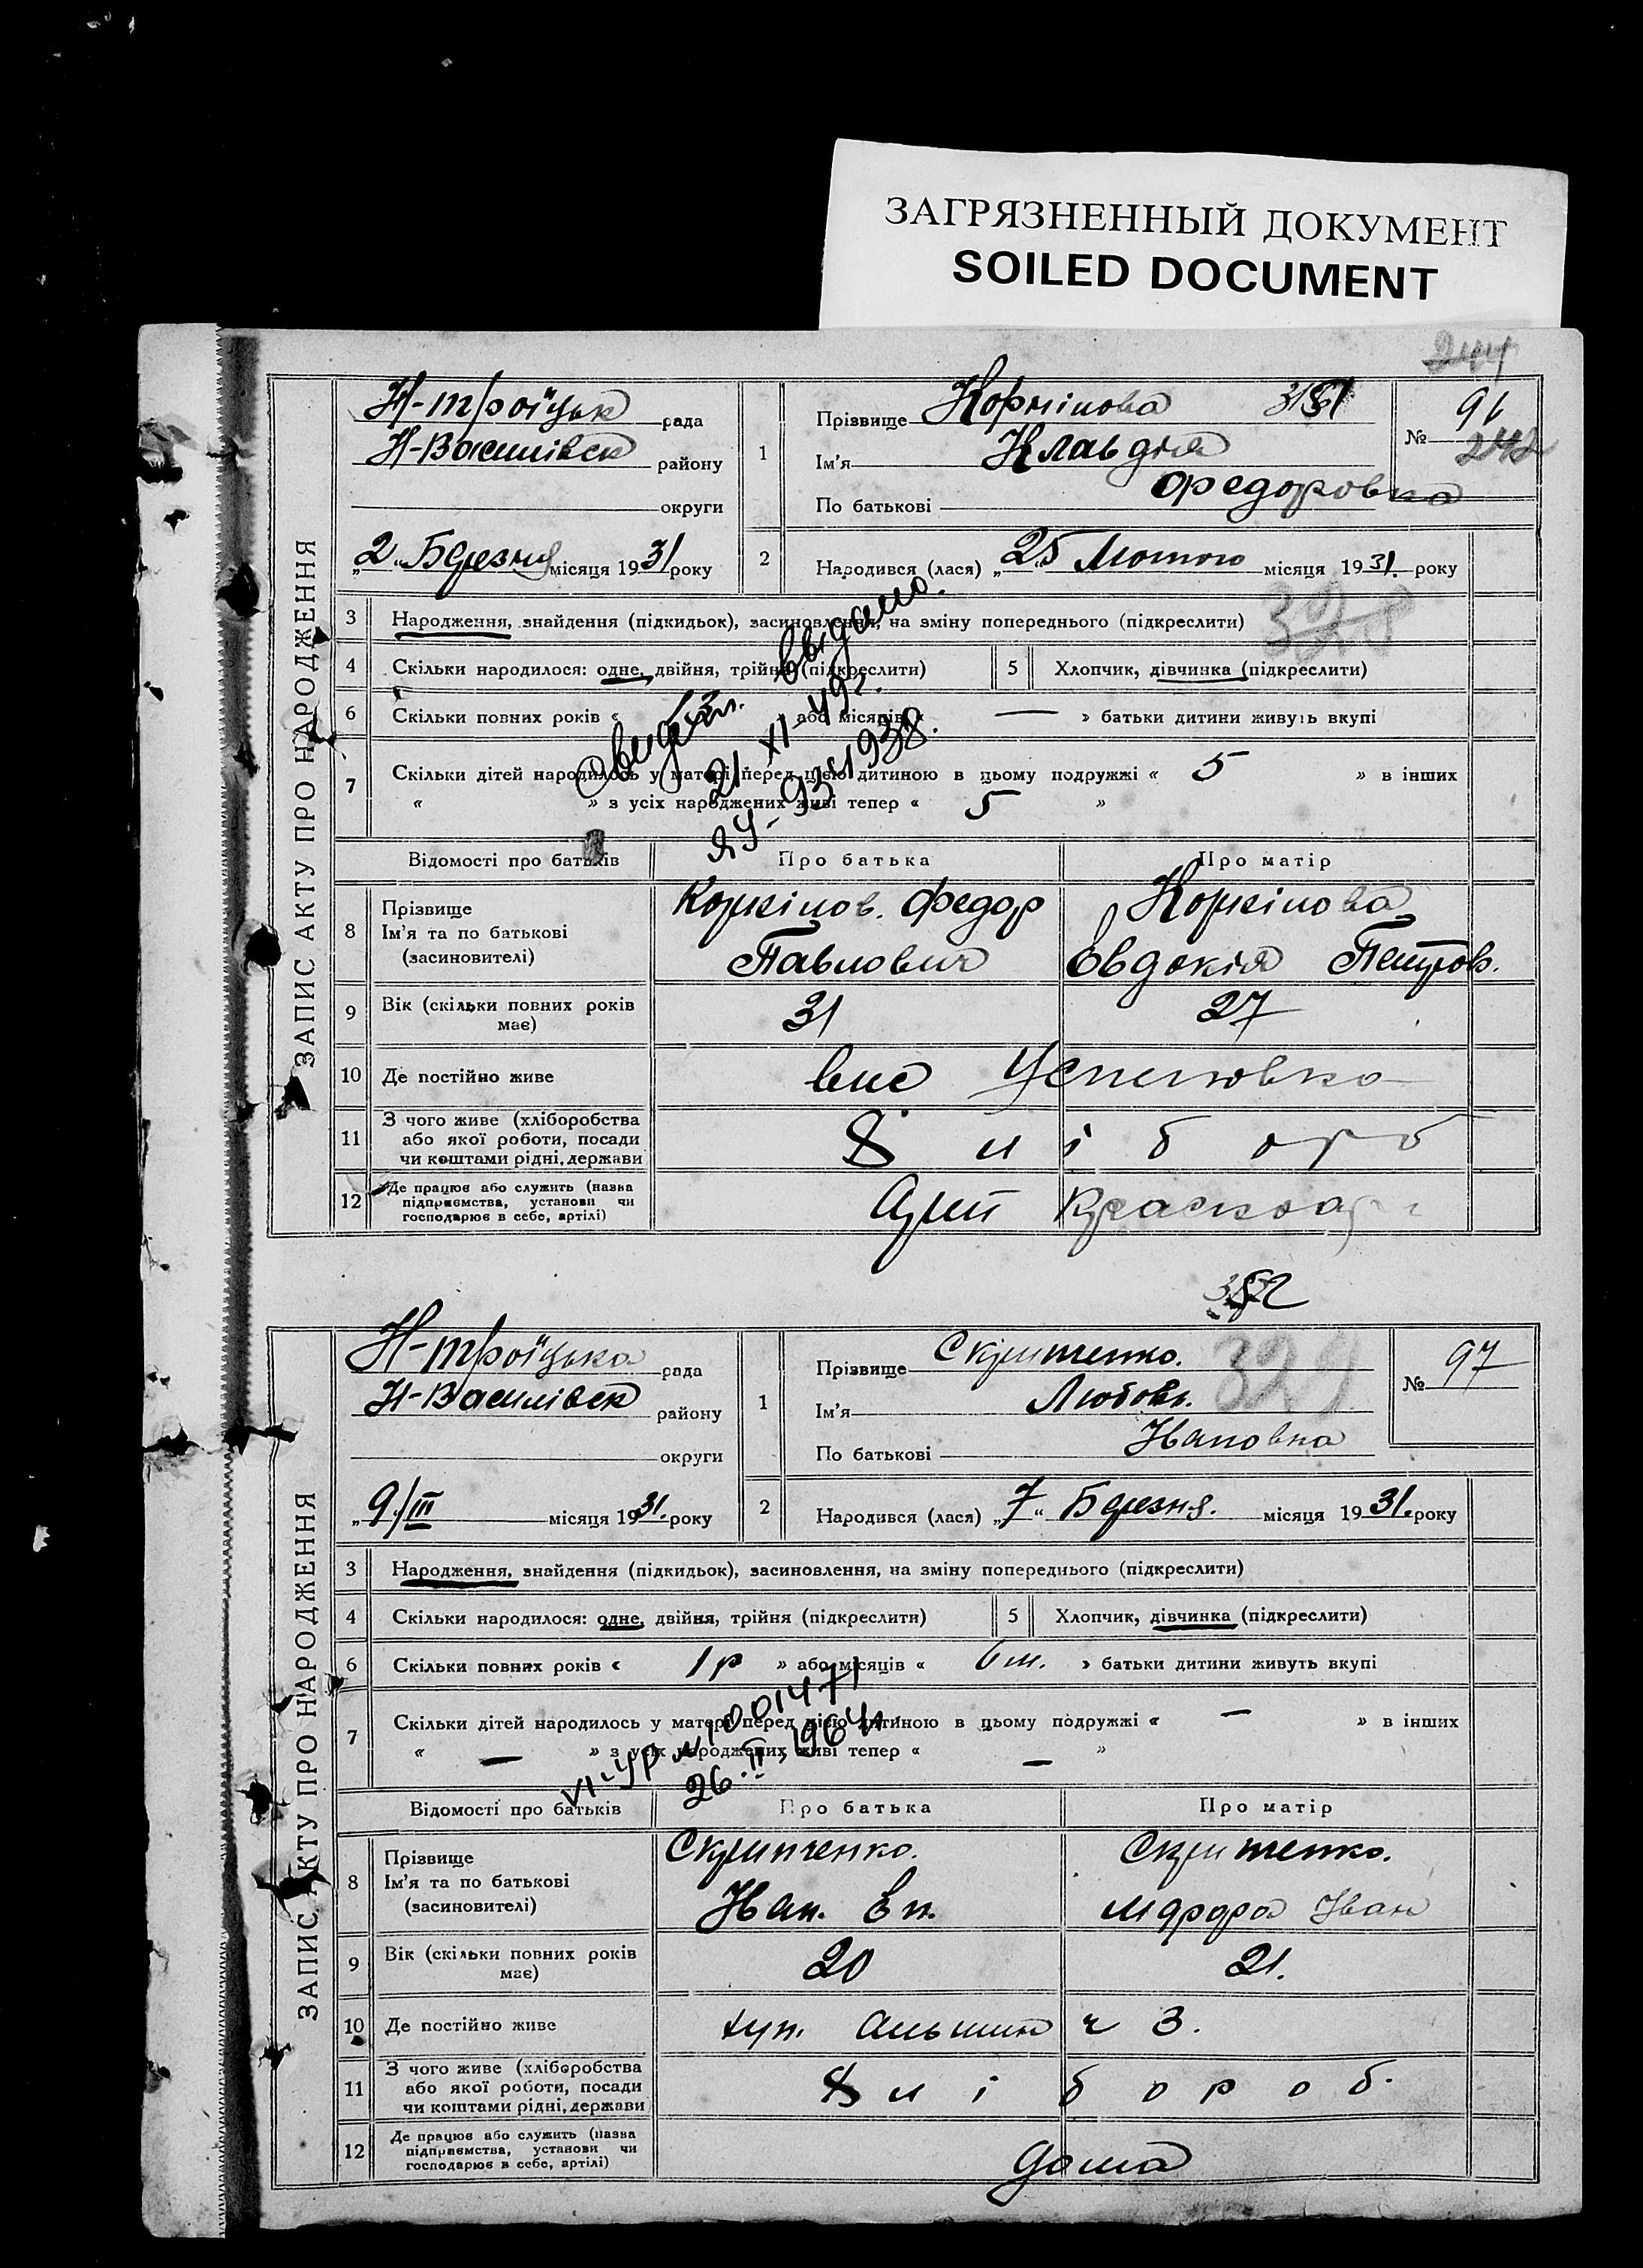 ЗАГРЯЗНЕННЫЙ ДОКУМЕНТ
SOILED DOCUMENT
244
ЗАПИС АКТУ ПРО НАРОДЖЕННЯ
Н-Троїцьк рада
Н-Василівск району
округи
„2„ Березня місяця 1931 року
1
Прізвище
Ім'я Клавдія
По батькові Федоровна
№ 96
242
2 Народився (лася) „25“ Лютого місяця 1931. року
328
3 Народження, знайдення (підкидьок), засиновлення, на зміну попереднього (підкреслити)
4 Скільки народилося: одне, двійня, трійня (підкреслити)
5 Хлопчик, дівчинка (підкреслити)
6 Скільки повних років « або місяців « — » батьки дитини живуть вкупі
7 Скільки дітей народилось у матері перед цією дитиною в цьому подружжі « 5 » в інших
« » з усіх народжених живі тепер « 5 »
21 XI-49г.
Відомості про батьків Про батька Про матір
8 Прізвище
Ім'я та по батькові
(засиновителі)
Федор
Павлович
Євдокія Петров.
9 Вік (скільки повних років має) 31 27
10 Де постійно живе Успеновка
11 З чого живе (хліборобства
або якої роботи, посади
чи коштами рідні, держави
Хлібороб
12 Де працює або служить (назва
підприємства, установи чи
господарює в себе, артілі)
352
ЗАПИС АКТУ ПРО НАРОДЖЕННЯ
Н-Троїцька рада
Н-Василівск району
округи
„9/III місяця 1931. року
1
Прізвище Скрипченко.
Ім'я Любовь.
По батькові Ивановна
329
№ 97
2 Народився (лася) „7“ Березня. місяця 1931. року
3 Народження, знайдення (підкидьок), засиновлення, на зміну попереднього (підкреслити)
4 Скільки народилося: одне, двійня, трійня (підкреслити)
5 Хлопчик, дівчинка (підкреслити)
6 Скільки повних років « 1р » або місяців « 6 м. » батьки дитини живуть вкупі
7 Скільки дітей народилось у матері перед цією дитиною в цьому подружжі « — » в інших
« — » з усіх народжених живі тепер « — »
26.II.1964
Відомості про батьків Про батька Про матір
8 Прізвище
Ім'я та по батькові
(засиновителі)
Скрипченко.
Иван.
Скрипченко.
Іван
9 Вік (скільки повних років має) 20 21.
10 Де постійно живе хут. ч 3.
11 З чого живе (хліборобства
або якої роботи, посади
чи коштами рідні, держави
Хлібороб.
12 Де працює або служить (назва
підприємства, установи чи
господарює в себе, артілі)
дома